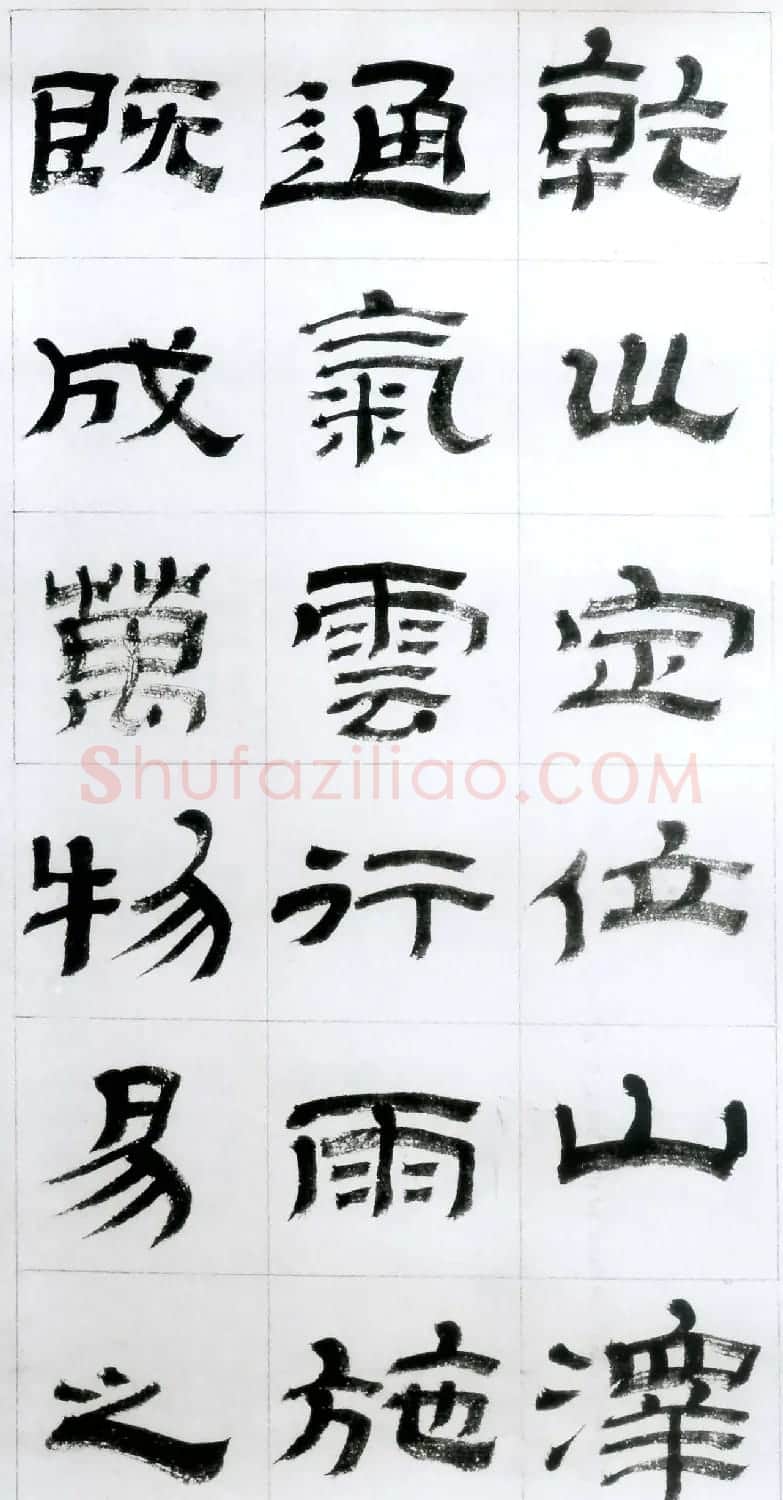 乾坤定位山澤
通氣雲行雨施
既成萬物易之
Shufaziliao.COM